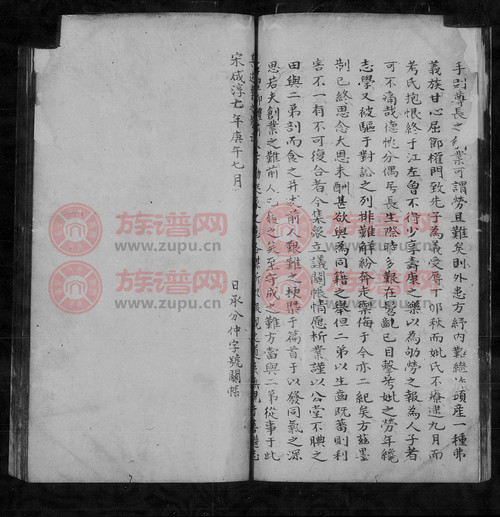 手創尊長之名業可謂勞且難矣則外患方紓内難繼作頭産一種弗
義族甘心屈節權門致先子為義受辱丁卯秋而妣氏不療逮九月而
考氏抱恨終于江左曾不得少享壽康之樂以為劬勞之報為人子者
可不痛哉德恍分偶居長生際時多艱在髫齔已目擊考妣之勞年纔
志學又被驅于對訟之列排難觧紛奔走禦侮于今亦二紀矣方茲墨
制已終思念大恩未酬甚欲與為同籍之舉但二弟以生齒既蕃則利
害不一有不可復合者今集衆立議鬮帳情應析業謹以公堂不腆之
田與二弟剖而食之并求前人艱難之梗槩于篇首于以發同氣之深
思若夫創業之難前人已後之矣至守成之難方當與二弟從事于此
宋咸淳七年庚午七月
日承分仲字號鬮帳
族谱网
www.zupu.cn
族谱网
www.zupu.cn
族谱网
www.zupu.cn
族谱网
www.zupu.cn